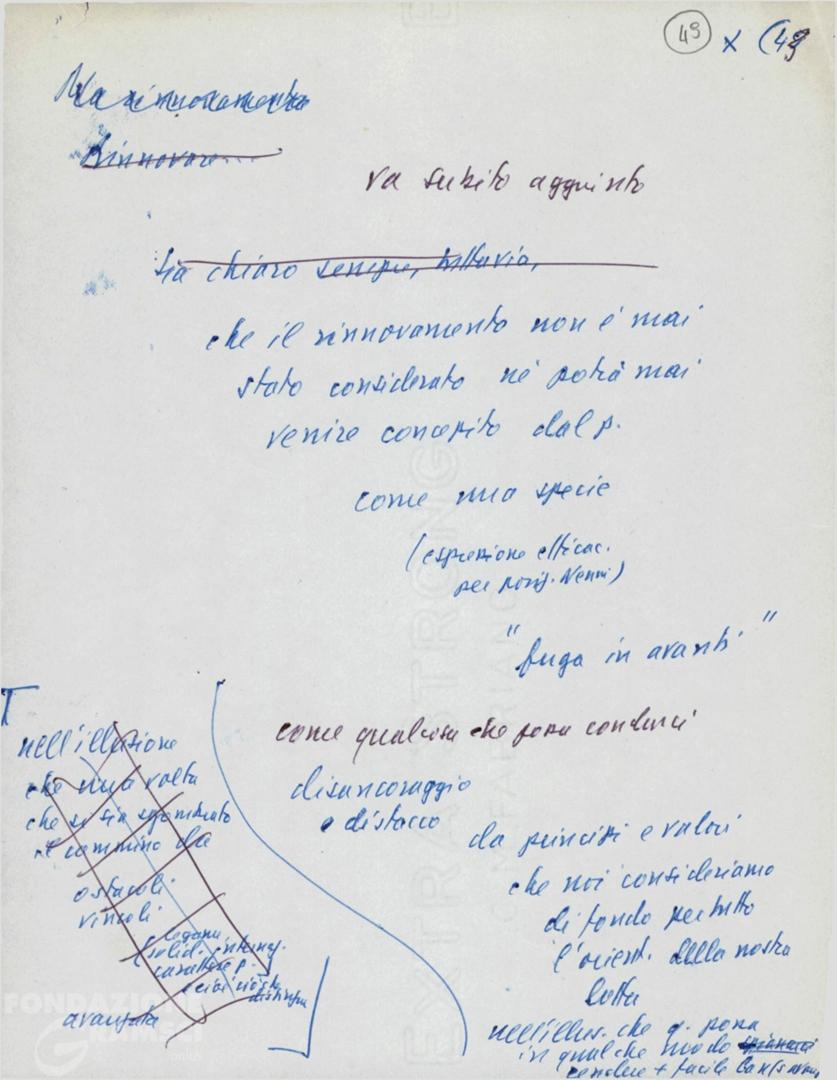 49 x (49
Ma rinnovamento
Rinnovare...
va subito aggiunto
Sia chiaro sempre, tuttavia,
che il rinnovamento non è mai
stato considerato nè potrà mai
venire concepito dal p.
come una specie
(espressione efficac.
per porig. Nenni)
"fuga in avanti"
come qualcosa che possa condurci
disancoraggio
e distacco
da principi e valori
che noi consideriamo
di fondo per tutto
l'orient. della nostra
lotta
nell'illus. che q. possa
in qualche modo
rendere + facile
T
nell'illusione
che una volta
che si sia sgombrato
il cammino da
ostacoli
vincoli
legami
(solid. internaz.
carattere p.
e ciò ciò
distingue
avanzata
FONDAZIONE
GRAMSCI
onlus
EXTRA STRONG
FABRIANO